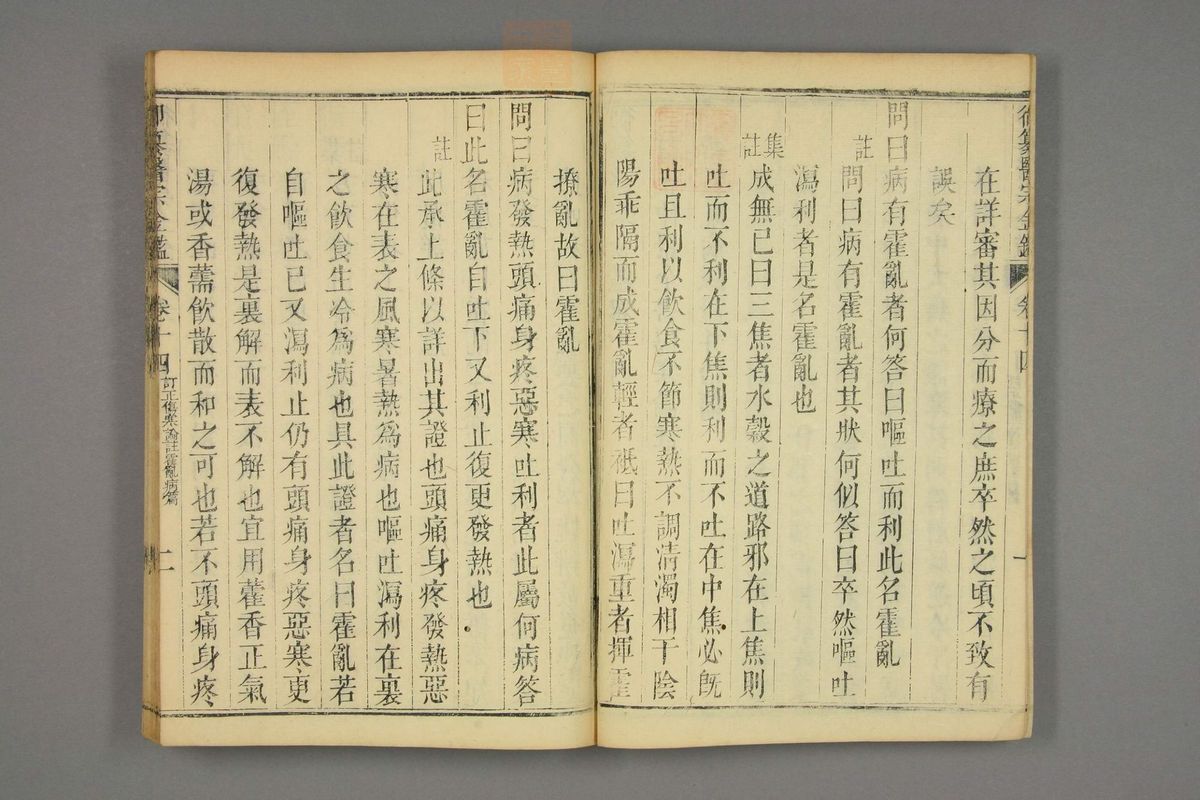 御纂醫宗金鑑 卷十四 一
在詳審其因分而療之庶卒然之頃不致有
誤矣
問曰病有霍亂者何答曰嘔吐而利此名霍亂
註
問曰病有霍亂者其狀何似答曰卒然嘔吐
瀉利者是名霍亂也
集註
成無已曰三焦者水穀之道路邪在上焦則
吐而不利在下焦則利而不吐在中焦必既
吐且利以飲食不節寒熱不調清濁相干陰
陽乖隔而成霍亂輕者祗曰吐瀉重者揮霍
撩亂故曰霍亂
問曰病發熱頭痛身疼惡寒吐利者此屬何病答
曰此名霍亂自吐下又利止復更發熱也
註
此承上條以詳出其證也頭痛身疼發熱惡
寒在表之風寒暑熱為病也嘔吐瀉利在裏
之飲食生冷為病也具此證者名曰霍亂若
自嘔吐已又瀉利止仍有頭痛身疼惡寒更
復發熱是裏解而表不解也宜用藿香正氣
湯或香薷飲散而和之可也若不頭痛身疼
御纂醫宗金鑑 卷十四 訂正傷寒論註霍亂病篇 二